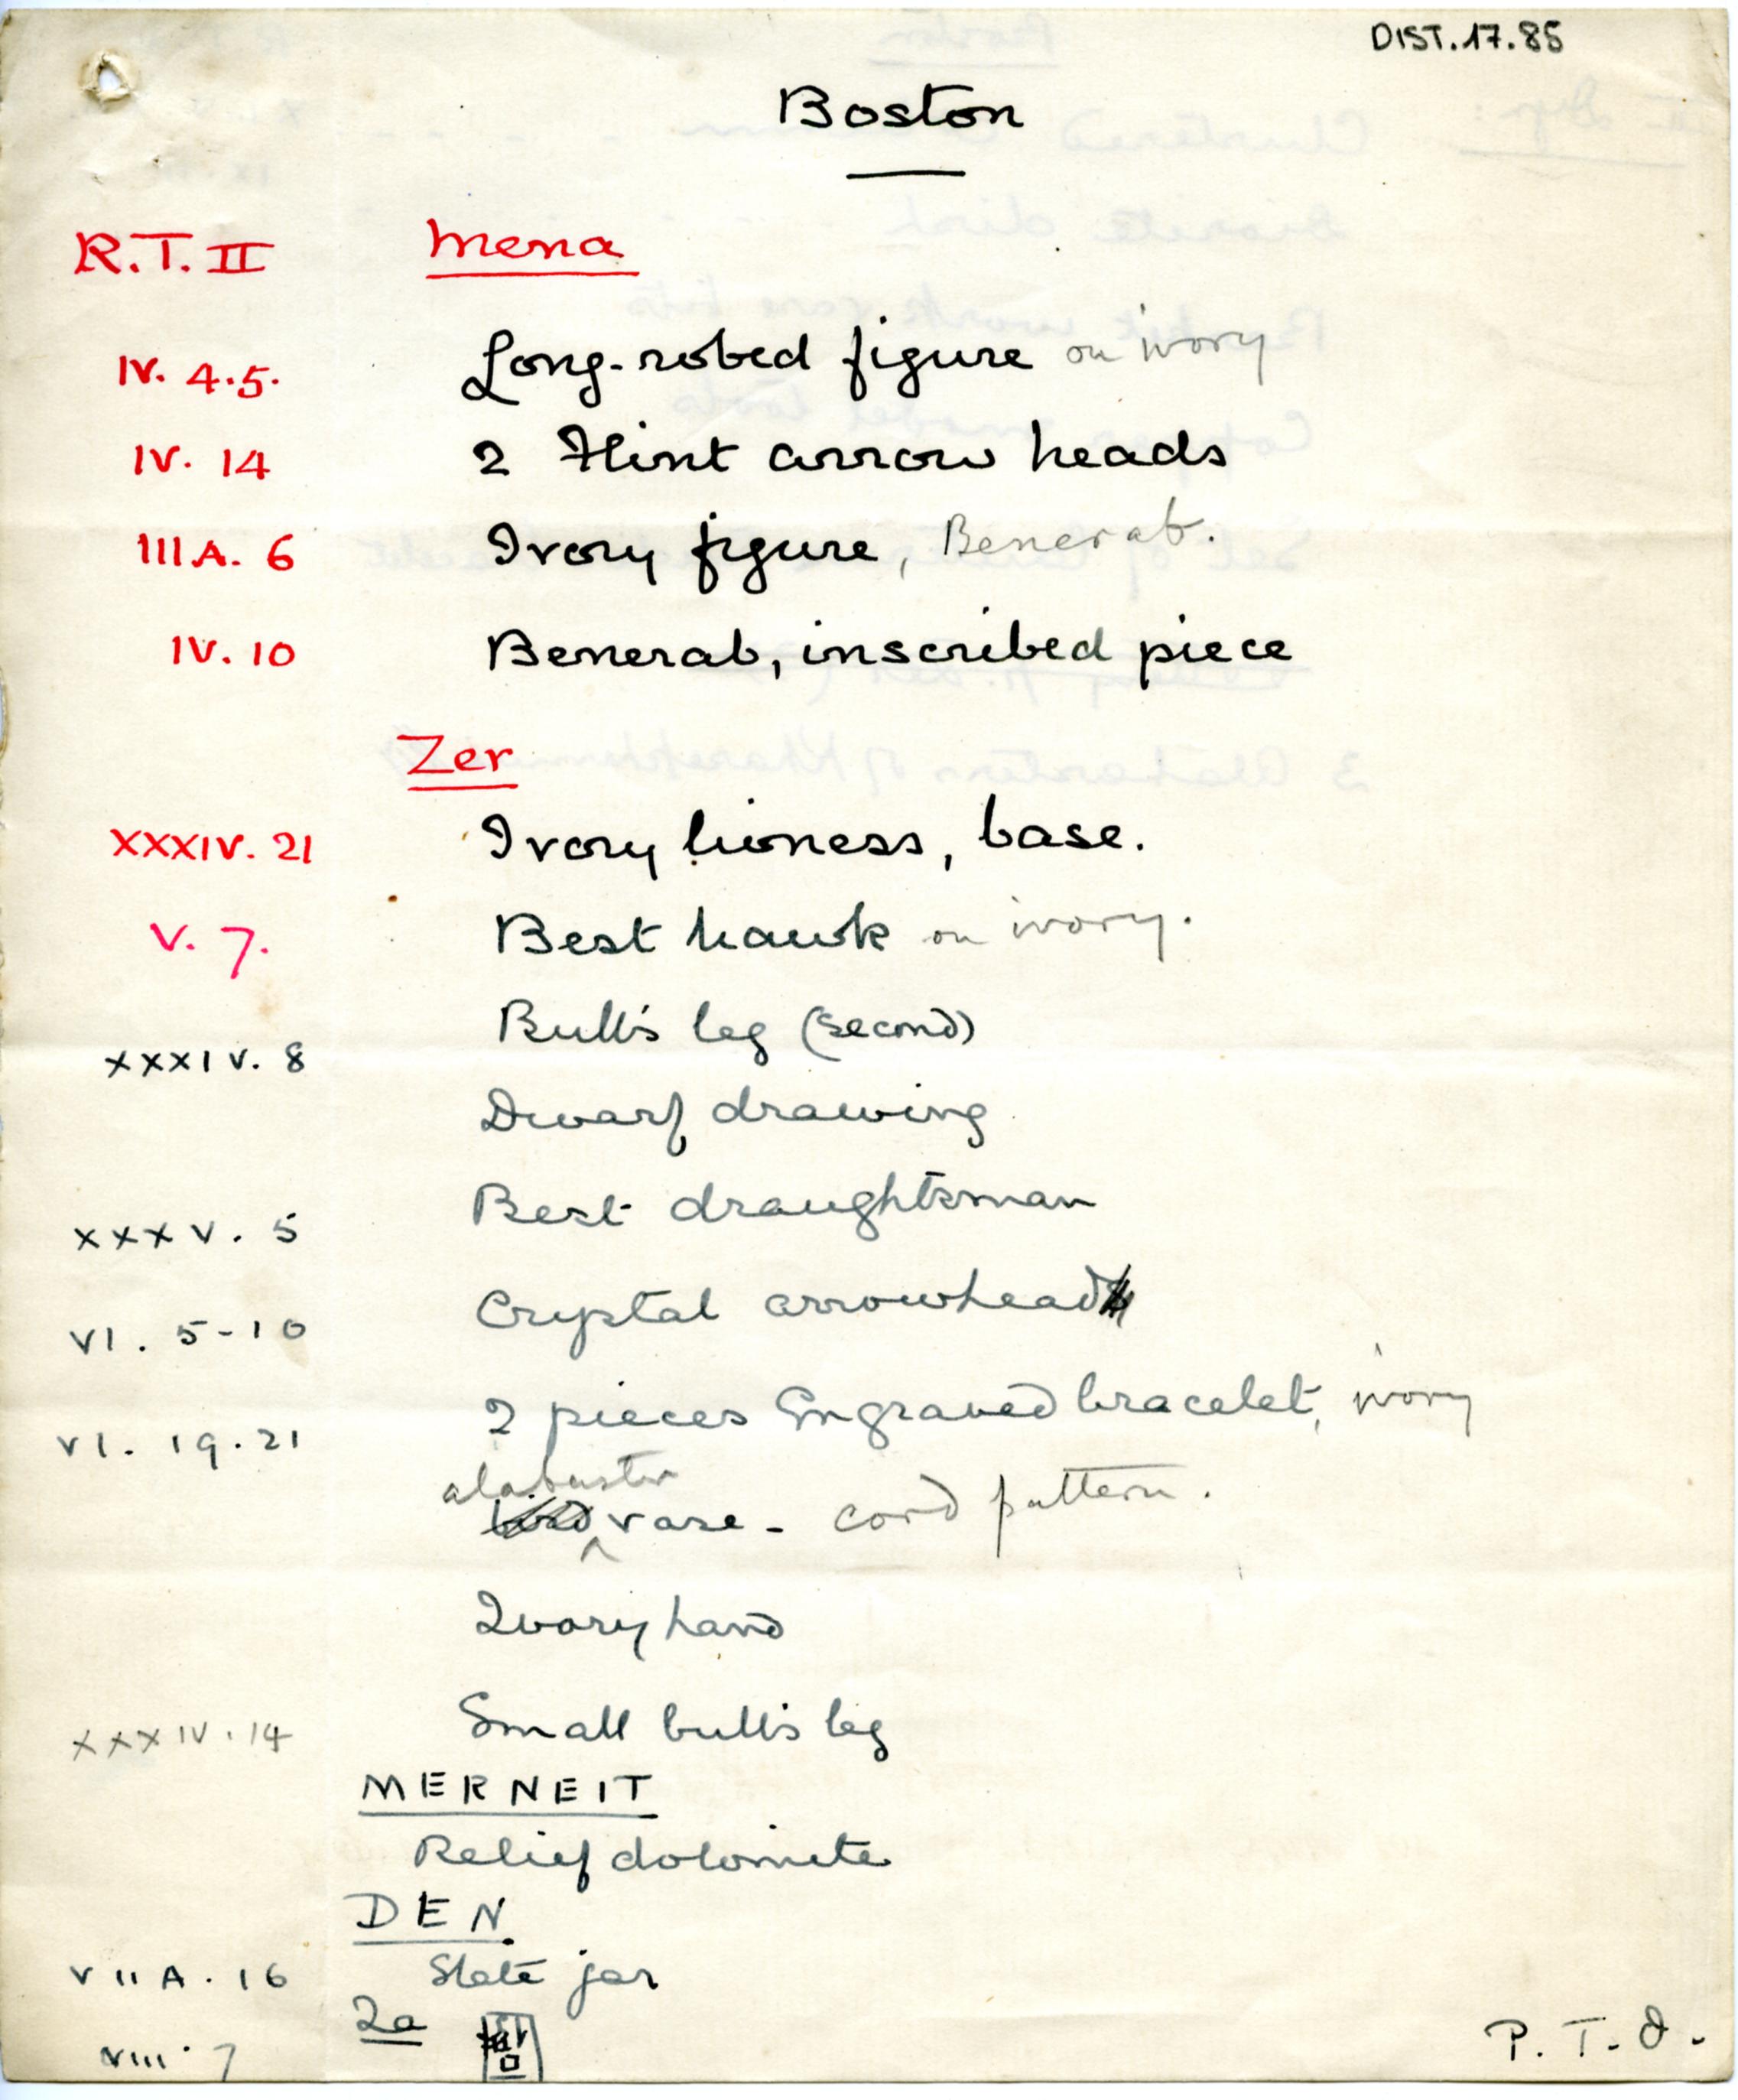 DIST.17.85
Boston
R.T. II Mena
IV. 4.5. Long-robed figure on ivory
IV. 14 2 Flint arrow heads
IIIA. 6 Ivory figure, Benerab.
IV. 10 Benerab, inscribed piece
Zer
XXXIV. 21 Ivory lioness, base.
V. 7. Best hawk on ivory.
Bull's leg (second)
XXXIV. 8
Dwarf drawing
Best draughtsman
XXXV. 5
Crystal arrowhead
VI. 5-10
2 pieces Engraved bracelet, ivory
VI. 19.21
alabaster
vase - cord pattern.
Ivory hand
Small bull's leg
XXXIV.14
MERNEIT
Relief dolomite
DEN
VIIA.16 Slate jar
Qa
VIII.7
P.T.O.